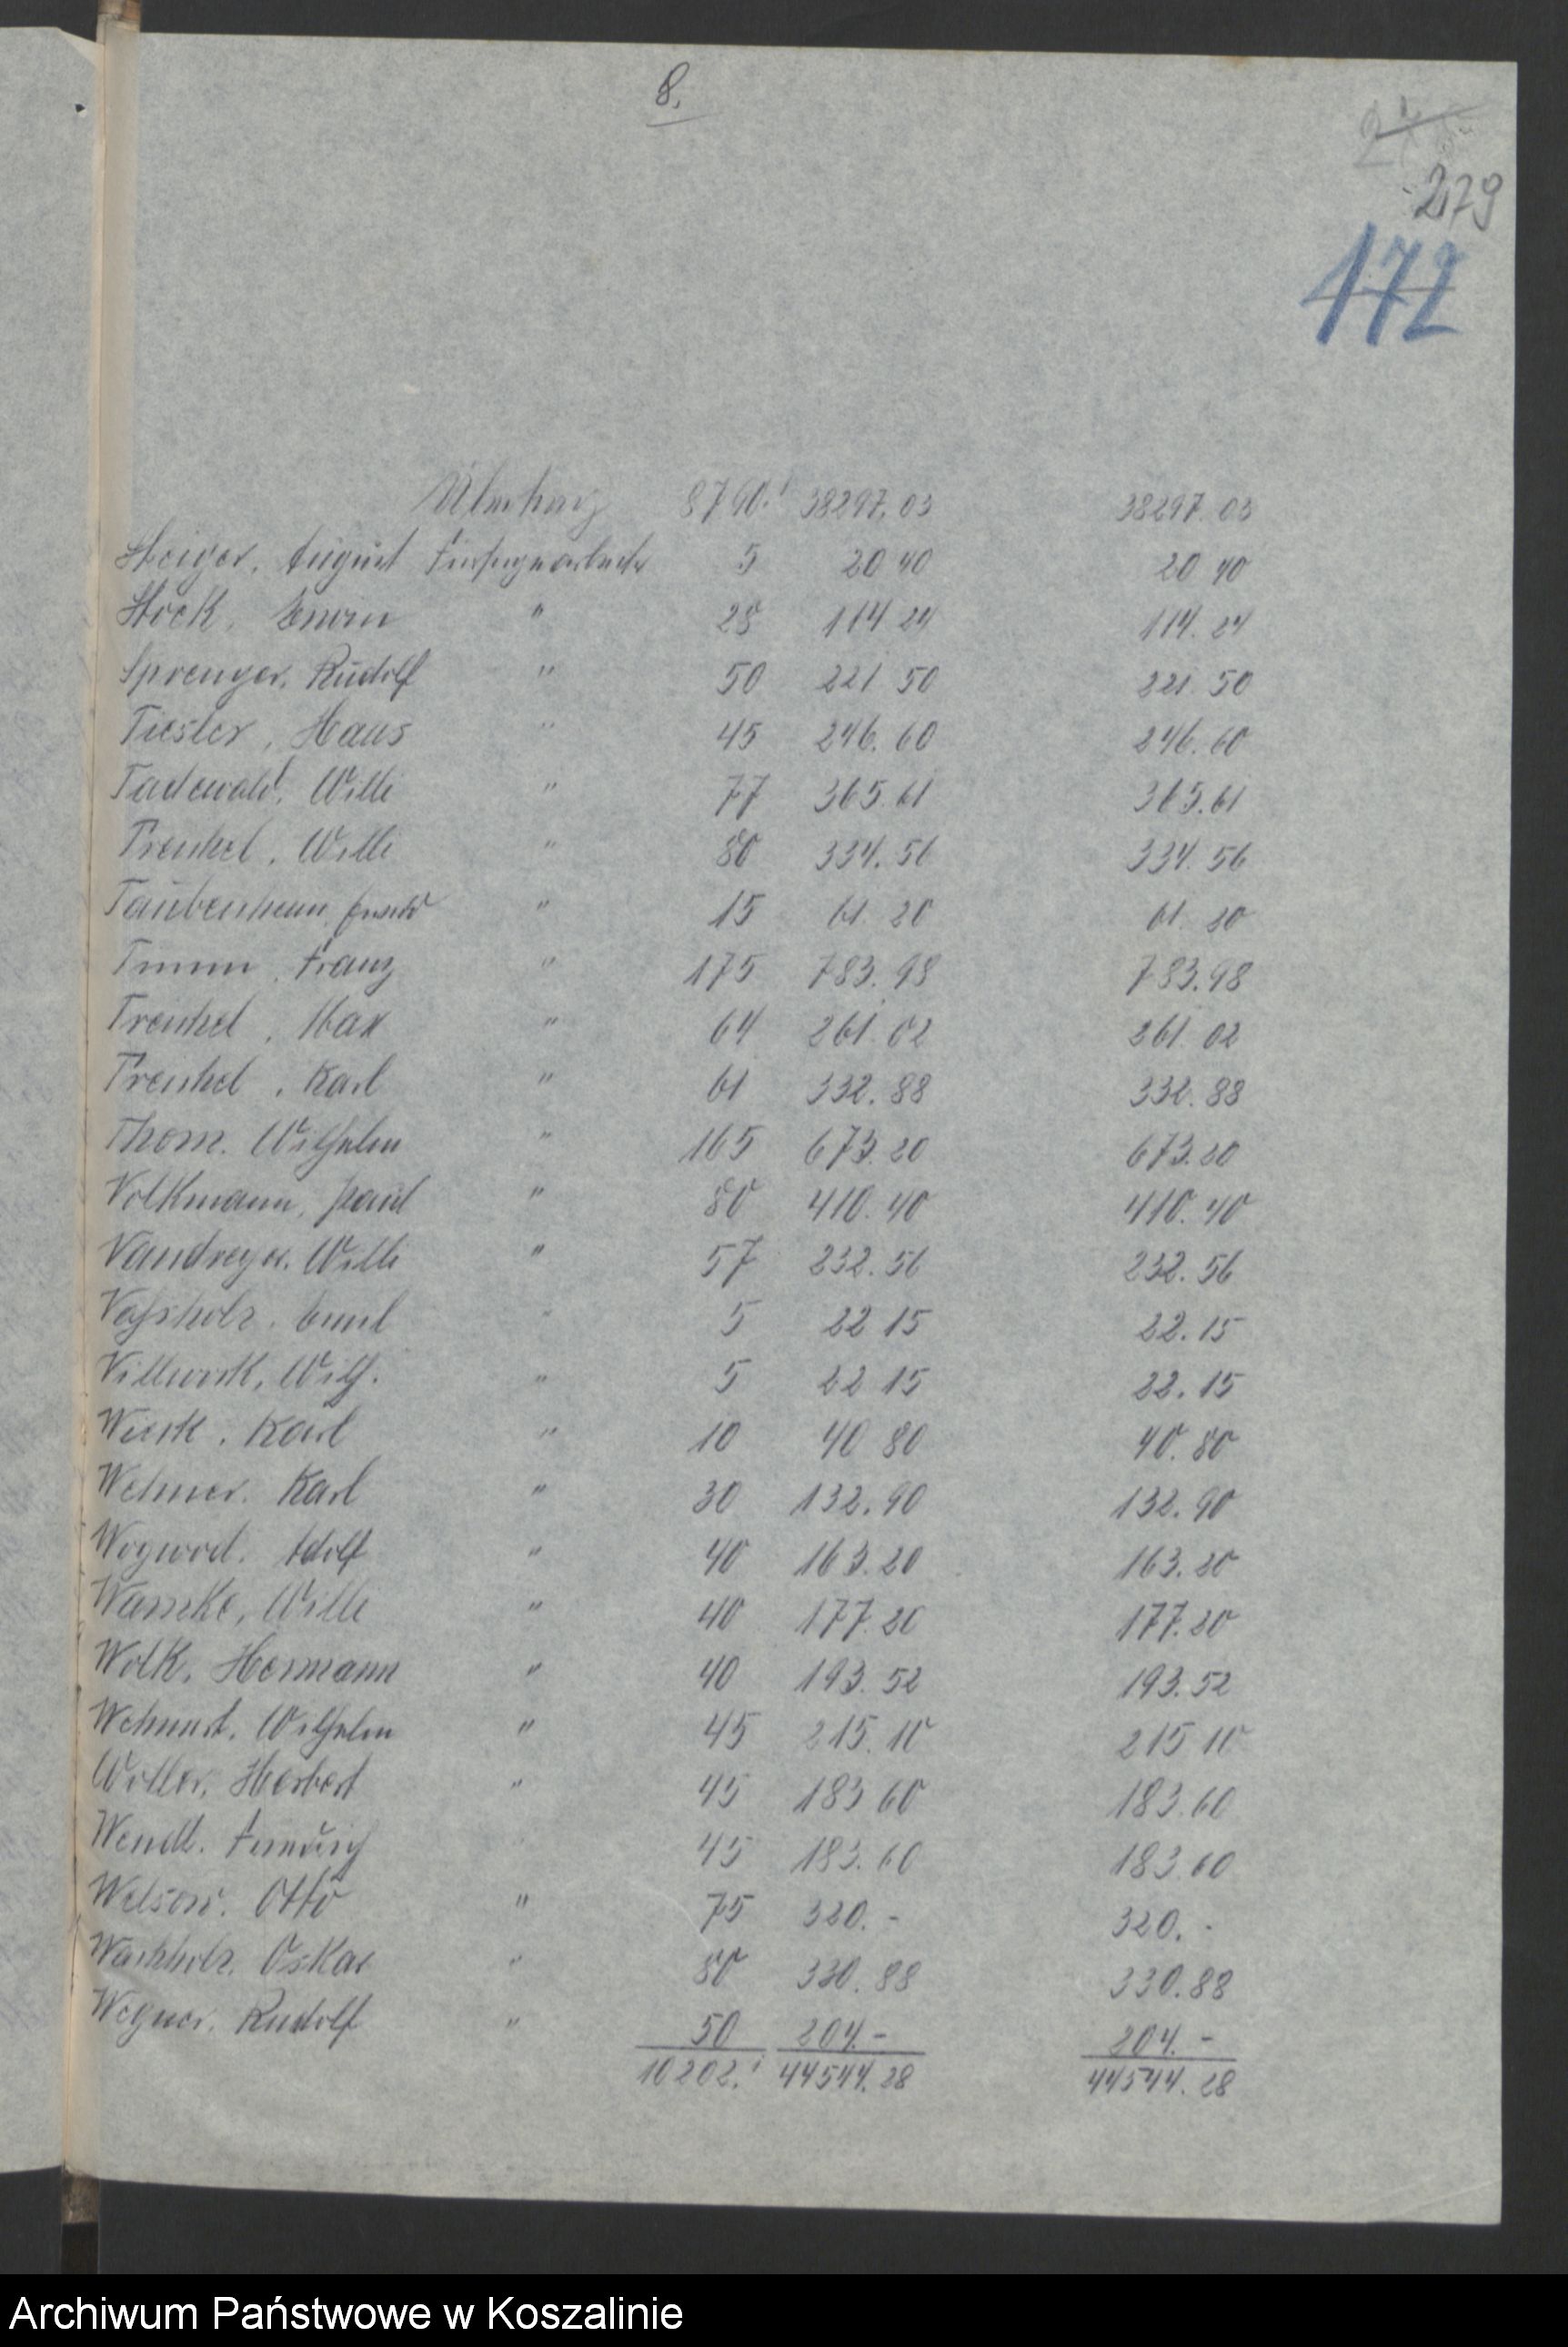 8.
279
172
Übertrag 8790. 38297.03 38297.03
Steiger, August Fürsorgearbeiter 5 20 40 20 40
Stock, Erwin " 28 114 24 114.24
Sprenger, Rudolf " 50 221 50 221.50
Tiesler, Hans " 45 246.60 246.60
Tadewald, Willi " 77 365.61 365.61
Trenkel, Willi " 80 334.56 334.56
Taubenheim, " 15 61.20 61.20
Timm, Franz " 175 783.98 783.98
Trenkel, Max " 64 261.02 261 02
Trenkel, Karl " 61 332.88 332.88
Thom. Wilhelm " 165 673.20 673.20
Volkmann, Paul " 80 410.40 410.40
Vandreyer. Willi " 57 232.56 232.56
Vahsholz. Emil " 5 22 15 22.15
Villwock, Wilh. " 5 22 15 22.15
Karl " 10 40 80 40.80
Wehner. Karl " 30 132.90 132.90
Woywod. Adolf " 40 163.20 163.20
Warnke, Willi " 40 177.20 177.20
Wolk, Hermann " 40 193.52 193.52
Wilhelm " 45 215.10 215 10
Woller, Herbert " 45 183 60 183.60
Wendt. " 45 183.60 183 60
Welsow. Otto " 75 320.- 320.-
Wachholz. Oskar " 80 330.88 330.88
Wegner. Rudolf " 50 204.- 204.-
10202. 44544.28 44544.28
Archiwum Państwowe w Koszalinie